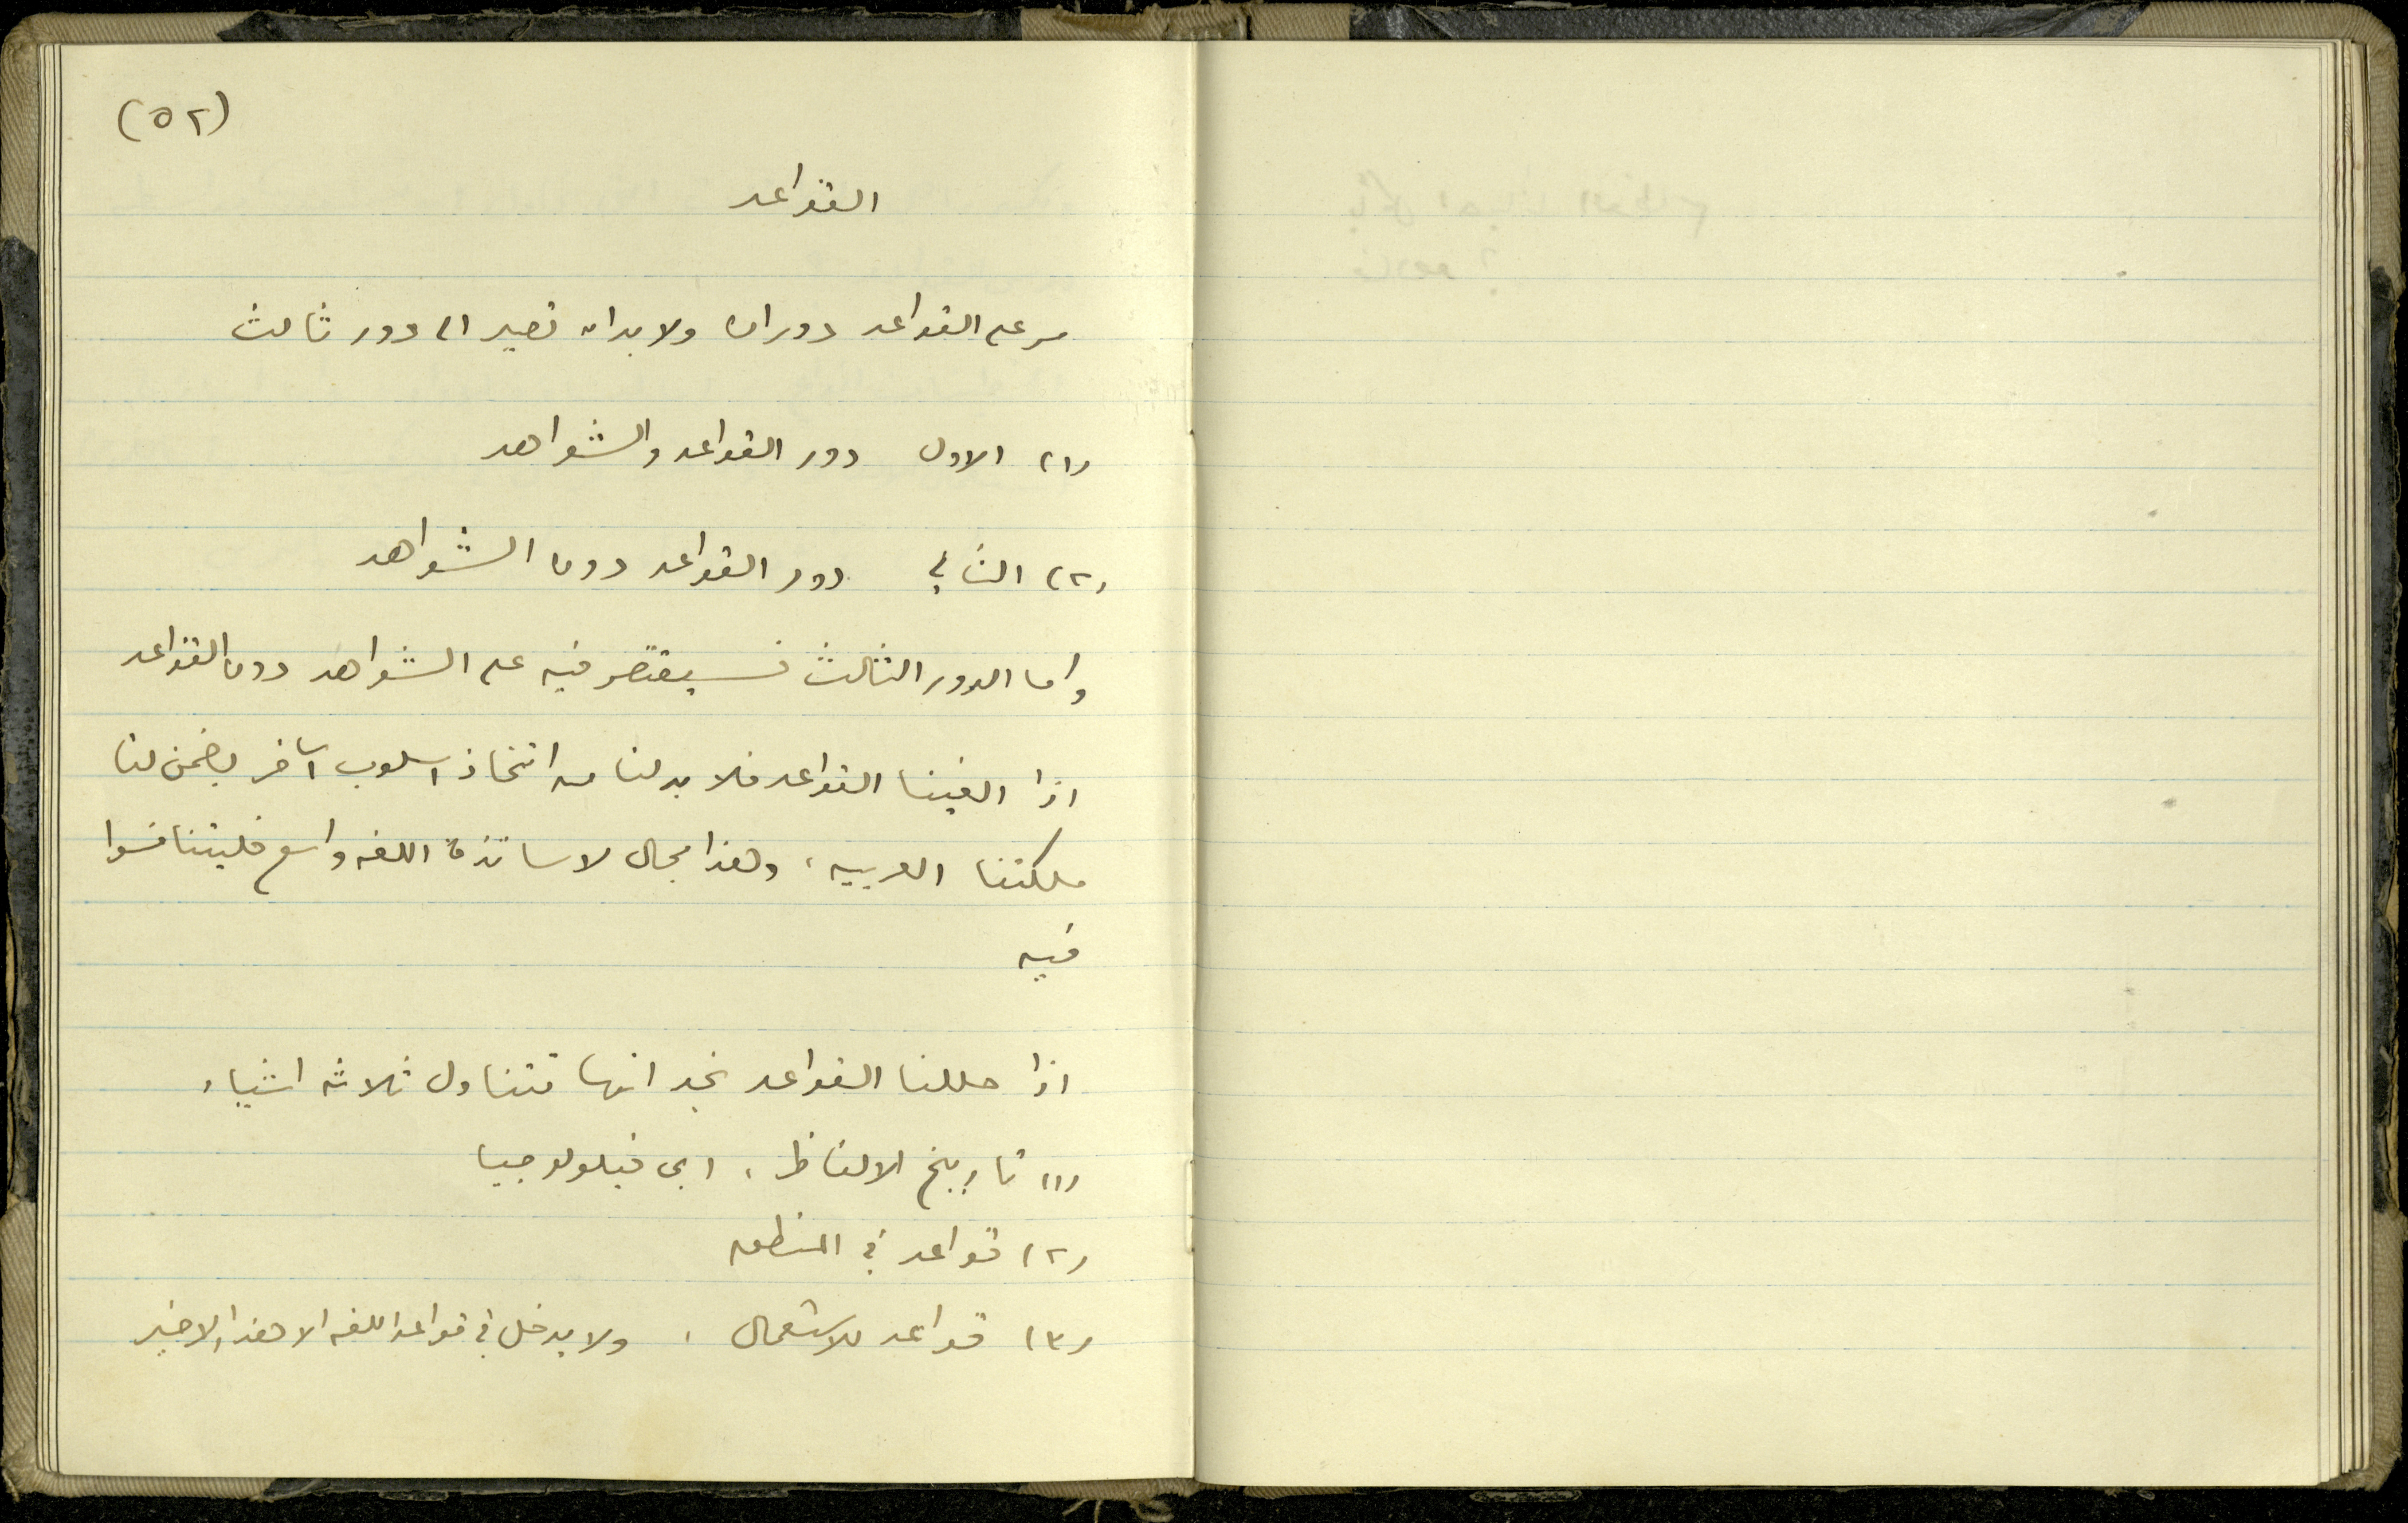 (٥٢)
القواعد
مر على القواعد دوران ولا بد ان تصير الى دور ثالث
(١) الاول دور القواعد والشواهد
(٢) الثاني دور القواعد دون الشواهد
واما الدور الثالث فسيقتصر فيه على الشواهد دون القواعد
اذا الغينا القواعد فلا بد لنا من اتخاذ اسلوب آخر يضمن لنا
ملكتنا العربيه ، وهذا مجال لاساتذة اللغه واسع فليتنافسوا
فيه
اذا حللنا القواعد نجد انها تتناول ثلاثه اشياء
(١) تاريخ الالفاظ ، اى فيلولوجيا
(٢) قواعد في المنطق
(٣) قواعد للاستعمال ، ولا يدخل في قواعد اللغه الا هذا الاخير